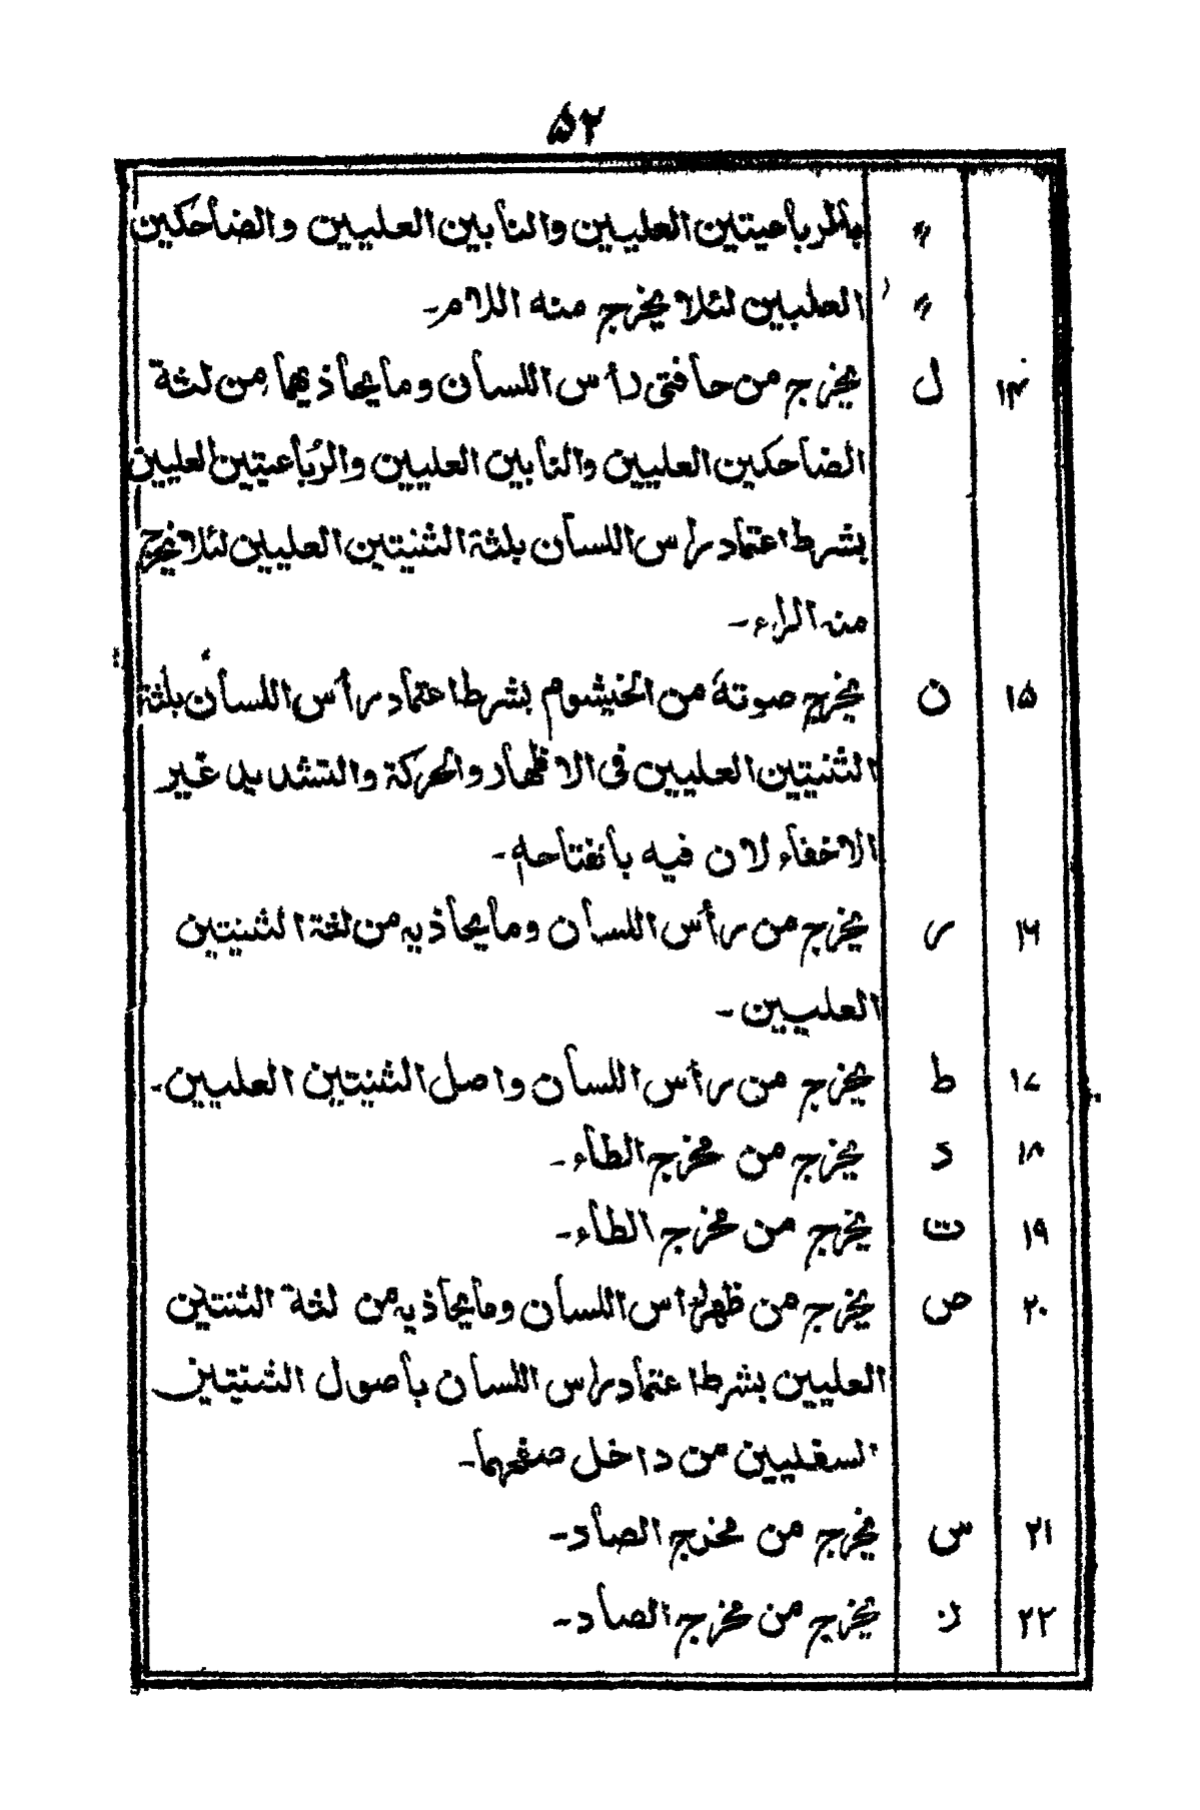 ۵۲
〃 بالرباعيتين العليين والنابين العليين والضاحكين
〃 العليين لئلا يخرج منه اللام۔
۱۴ ل يخرج من حافتى رأس اللسان وما يحاذيهما من لثة
الضاحكين العليين والنابين العليين والرُباعيتين العليين
بشرط اعتماد راس اللسان بلثة الثنيتين العليين لئلا يخرج
منه الراء۔
۱۵ ن يخرج صوته من الخيشوم بشرط اعتماد رأس اللسان بلثة
الثنيتين العليين فى الاظهار والحركة والتشديد غير
الاخفاء لان فيه بانفتاحه۔
۱۶ ر يخرج من رأس اللسان وما يحاذيه من لثة الثنيتين
العليين۔
۱۷ ط يخرج من رأس اللسان واصل الثنيتين العليين۔
۱۸ د يخرج من مخرج الطاء۔
۱۹ ت يخرج من مخرج الطاء۔
۲۰ ص يخرج من ظهر رأس اللسان وما يحاذيه من لثة الثنتين
العليين بشرط اعتماد راس اللسان بأصول الثنيتين
السفليين من داخل صفحهما۔
۲۱ س يخرج من مخرج الصاد۔
۲۲ ز يخرج من مخرج الصاد۔